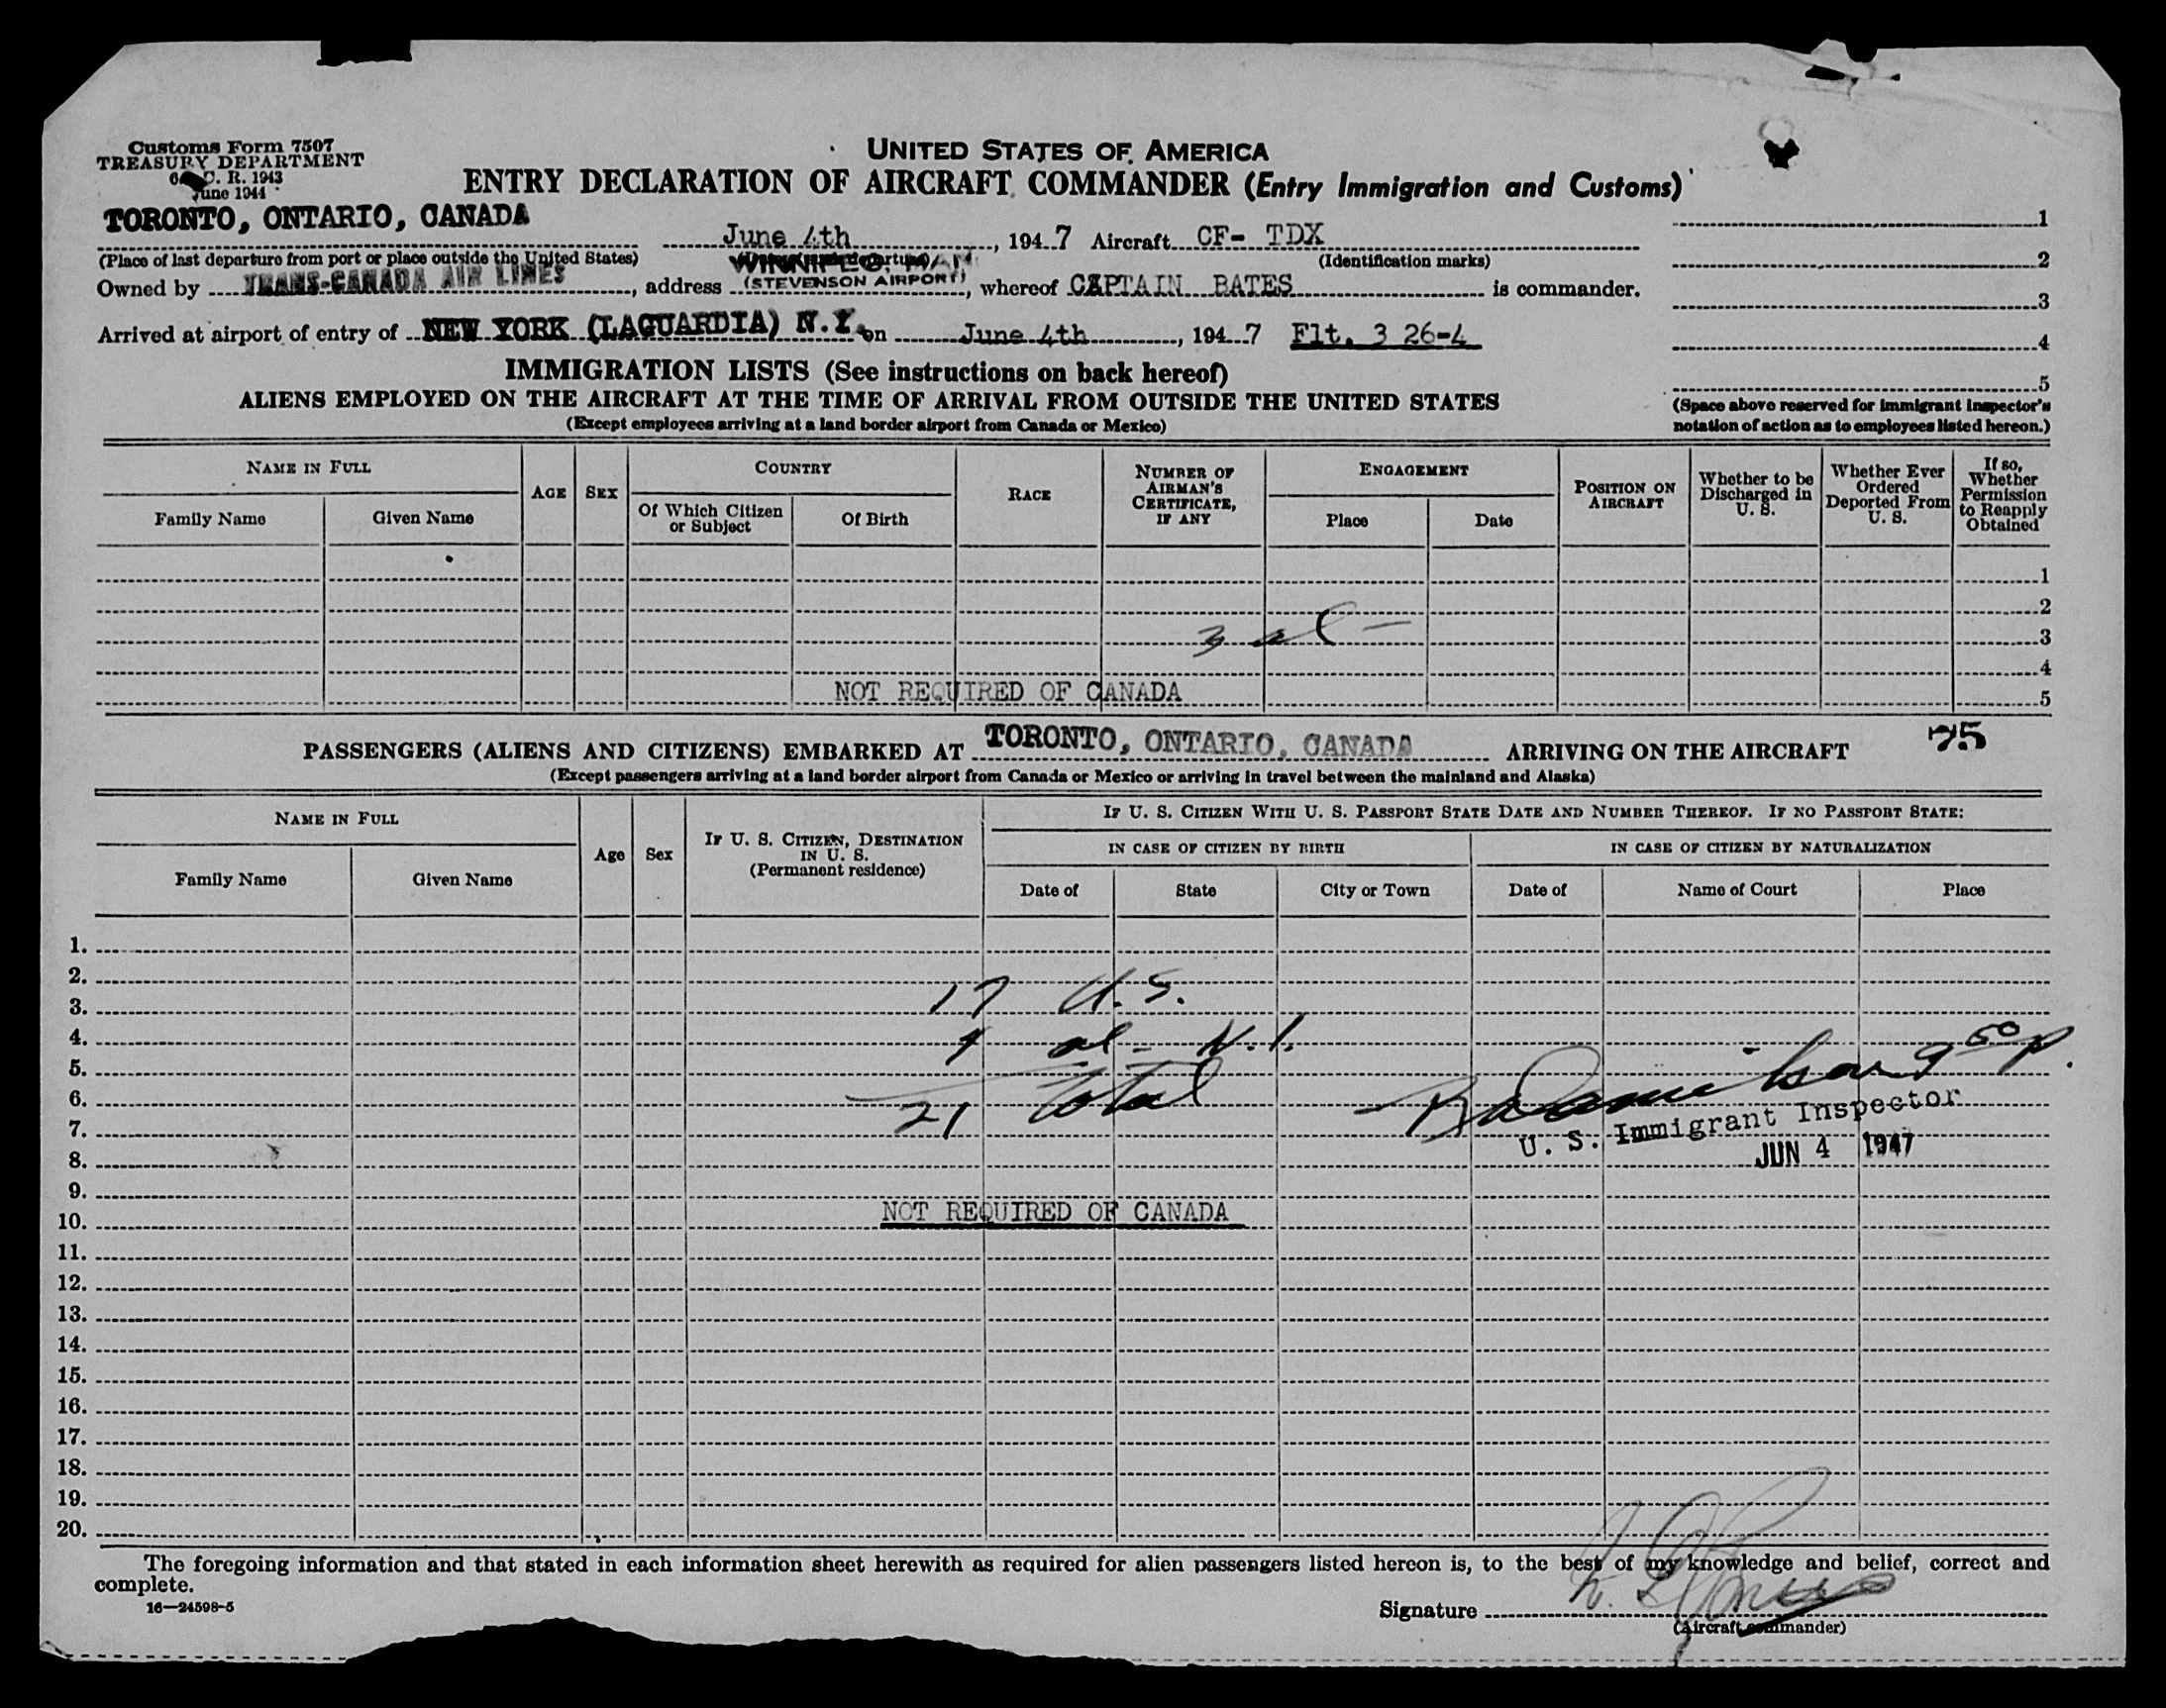 Customs Form 7507
TREASURY DEPARTMENT
C. R. 1943
June 1944
UNITED STATES OF AMERICA
ENTRY DECLARATION OF AIRCRAFT COMMANDER (Entry Immigration and Customs)
TORONTO, ONTARIO, CANADA
June 4th, 1947 Aircraft CF- TDX
(Place of last departure from port or place outside the United States)
(Identification marks)
WINNIPEG, MAN
Owned by TRANS-CANADA AIR LINES, address (STEVENSON AIRPORT), whereof CAPTAIN BATES is commander.
Arrived at airport of entry of NEW YORK (LAGUARDIA) N.Y. on June 4th, 1947 Flt. 3 26-4
1
2
3
4
5
(Space above reserved for immigrant inspector's
notation of action as to employees listed hereon.)
IMMIGRATION LISTS (See instructions on back hereof)
ALIENS EMPLOYED ON THE AIRCRAFT AT THE TIME OF ARRIVAL FROM OUTSIDE THE UNITED STATES
(Except employees arriving at a land border airport from Canada or Mexico)
NAME IN FULL
Family Name
Given Name
AGE
SEX
COUNTRY
Of Which Citizen
or Subject
Of Birth
RACE
NUMBER OF
AIRMAN'S
CERTIFICATE,
IF ANY
ENGAGEMENT
Place
Date
POSITION ON
AIRCRAFT
Whether to be
Discharged in
U. S.
Whether Ever
Ordered
Deported From
U. S.
If so,
Whether
Permission
to Reapply
Obtained
1
2
3
3
4
NOT REQUIRED OF CANADA
5
PASSENGERS (ALIENS AND CITIZENS) EMBARKED AT TORONTO, ONTARIO, CANADA ARRIVING ON THE AIRCRAFT
75
(Except passengers arriving at a land border airport from Canada or Mexico or arriving in travel between the mainland and Alaska)
NAME IN FULL
Family Name
Given Name
Age
Sex
IF U. S. CITIZEN, DESTINATION
IN U. S.
(Permanent residence)
IF U. S. CITIZEN WITH U. S. PASSPORT STATE DATE AND NUMBER THEREOF. IF NO PASSPORT STATE:
IN CASE OF CITIZEN BY BIRTH
Date of
State
City or Town
IN CASE OF CITIZEN BY NATURALIZATION
Date of
Name of Court
Place
1.
2.
3. 17 U.S.
4. al - N.I.
9 50 p.
5.
6. 21 Total
7.
U. S. Immigrant Inspector
8.
JUN 4 1947
9.
10. NOT REQUIRED OF CANADA
11.
12.
13.
14.
15.
16.
17.
18.
19.
20.
The foregoing information and that stated in each information sheet herewith as required for alien passengers listed hereon is, to the best of my knowledge and belief, correct and
complete.
16—24598-5
Signature
(Aircraft commander)